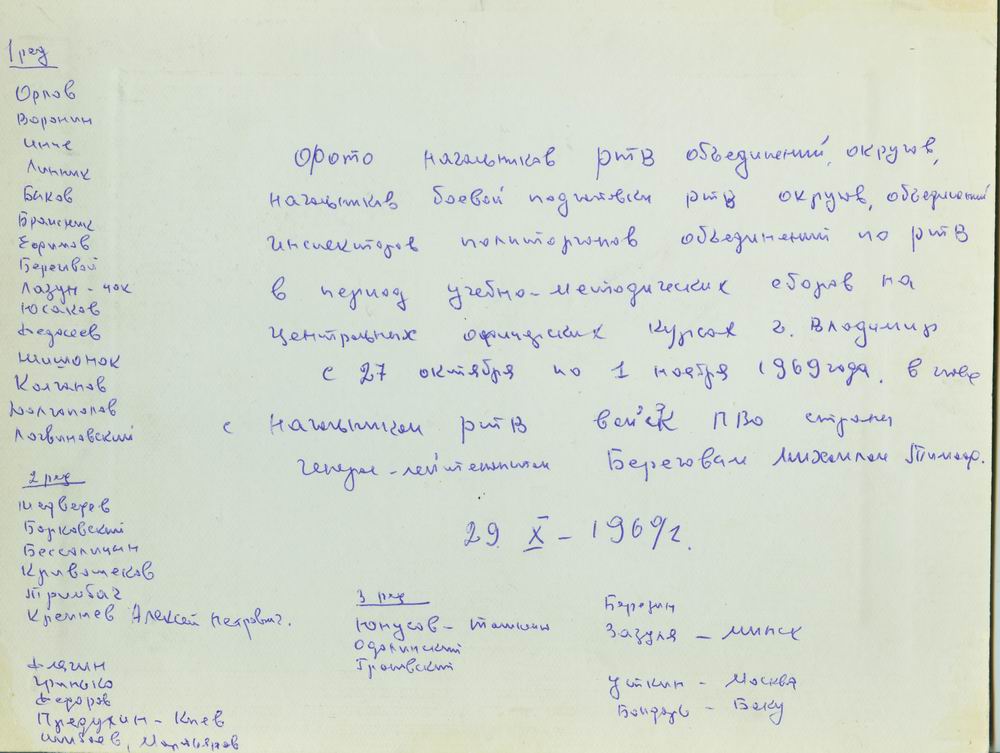 1 ряд
Орлов
Воронин
Инче
Линник
Быков
Ефимов
Береговой
Лазун-чок
Юсаков
Федосеев
Мишонок
Колганов
Долгополов
Логвиновский
2 ряд
Медведев
Борковский
Бессалицын
Кривошеков
Тримбач
Алексей Петрович.
Флягин
Гринько
Федоров
Предухин - Киев
Фото начальников РТВ объединений, округов,
начальников боевой подготовки РТВ округов, объединений
инспекторов политорганов объединений по РТВ
в период учебно-методических сборов на
Центральных офицерских курсах г. Владимир
с 27 октября по 1 ноября 1969 года. в
с начальником РТВ войск ПВО страны
генерал-лейтенантом Береговым Михаилом Тимоф.
29 X - 1969г.
3 ряд
Юнусов -
Одолинский
Гротвский
Березин
Зазуля - Минск
Уткин - Москва
Бондарь - Баку